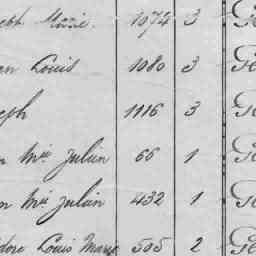 Marie. 1074 3 Ge
Louis 1080 3 Ge
eph 1116 3 Ge
n Mie Julien 66 1 Ge
n Mie Julien 432 1 Ge
dore Louis Marie 505 2 Ge